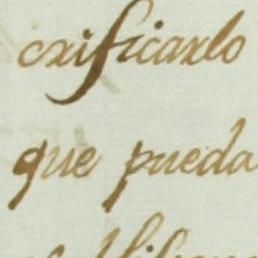 crificarlo
que pueda